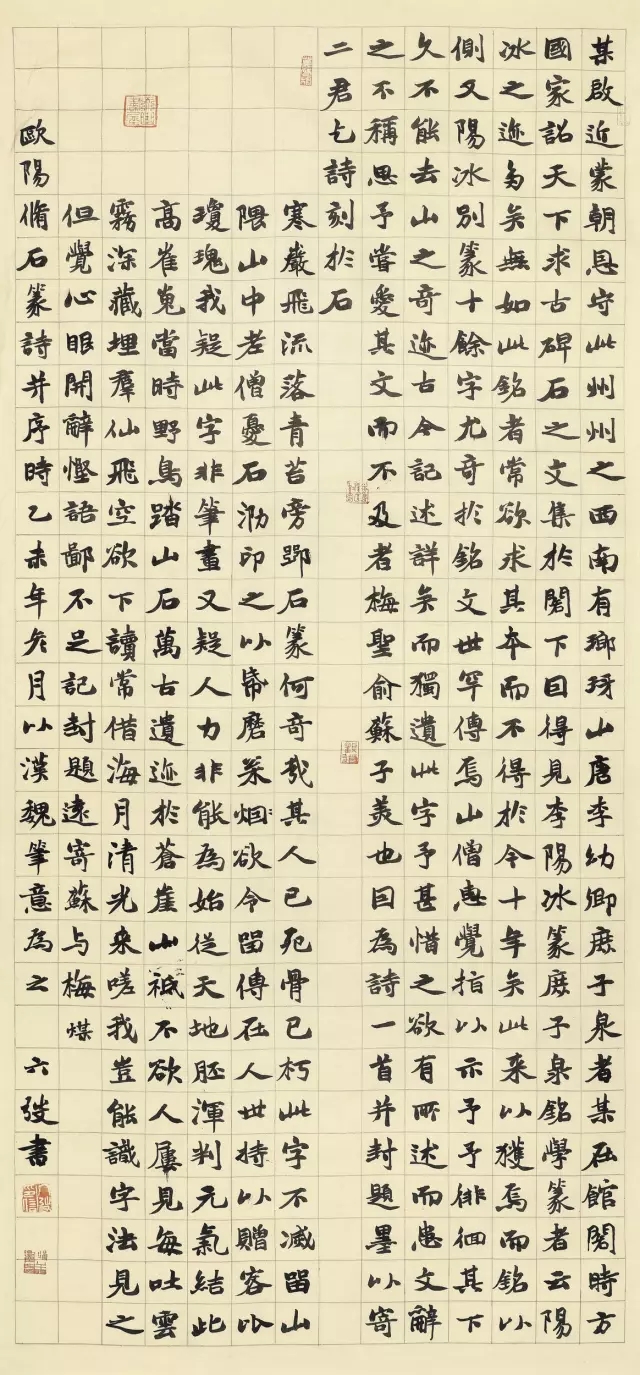 某啟近蒙朝恩守此州州之西南有瑯琊山唐李幼卿庶子泉者某在館閣時方
國家詔天下求古碑石之文集於閣下因得見李陽冰篆庶子泉銘學篆者云陽
冰之迹多矣無如此銘者常欲求其本而不得於今十年矣此来以獲焉而銘以
側又陽冰別篆十餘字尤奇於銘文世罕傳焉山僧惠覺指以示予予徘徊其下
久不能去山之奇迹古今記述詳矣而獨遺此字予甚惜之欲有所述而患文辭
之不稱思予嘗愛其文而不及者梅聖俞蘇子美也因為詩一首并封題墨以寄
二君乞詩刻於石
寒巖飛流落青苔旁斵石篆何奇哉其人已死骨已朽此字不滅留山
隈山中老僧憂石泐印之以帋磨枀烟欲令留傳在人世持以贈客比
瓊瑰我疑此字非筆畫又疑人力非能為始從天地胚渾判元氣結此
高崔嵬當時野鳥踏山石萬古遺迹於蒼崖山祇不欲人屢見每吐雲
霧深藏埋羣仙飛空欲下讀常借海月清光来嗟我豈能識字法見之
但覺心眼開辭慳語鄙不足記封題遠寄蘇与梅 煤
歐陽脩石篆詩并序時乙未年冬月以漢魏筆意為之 六弢書